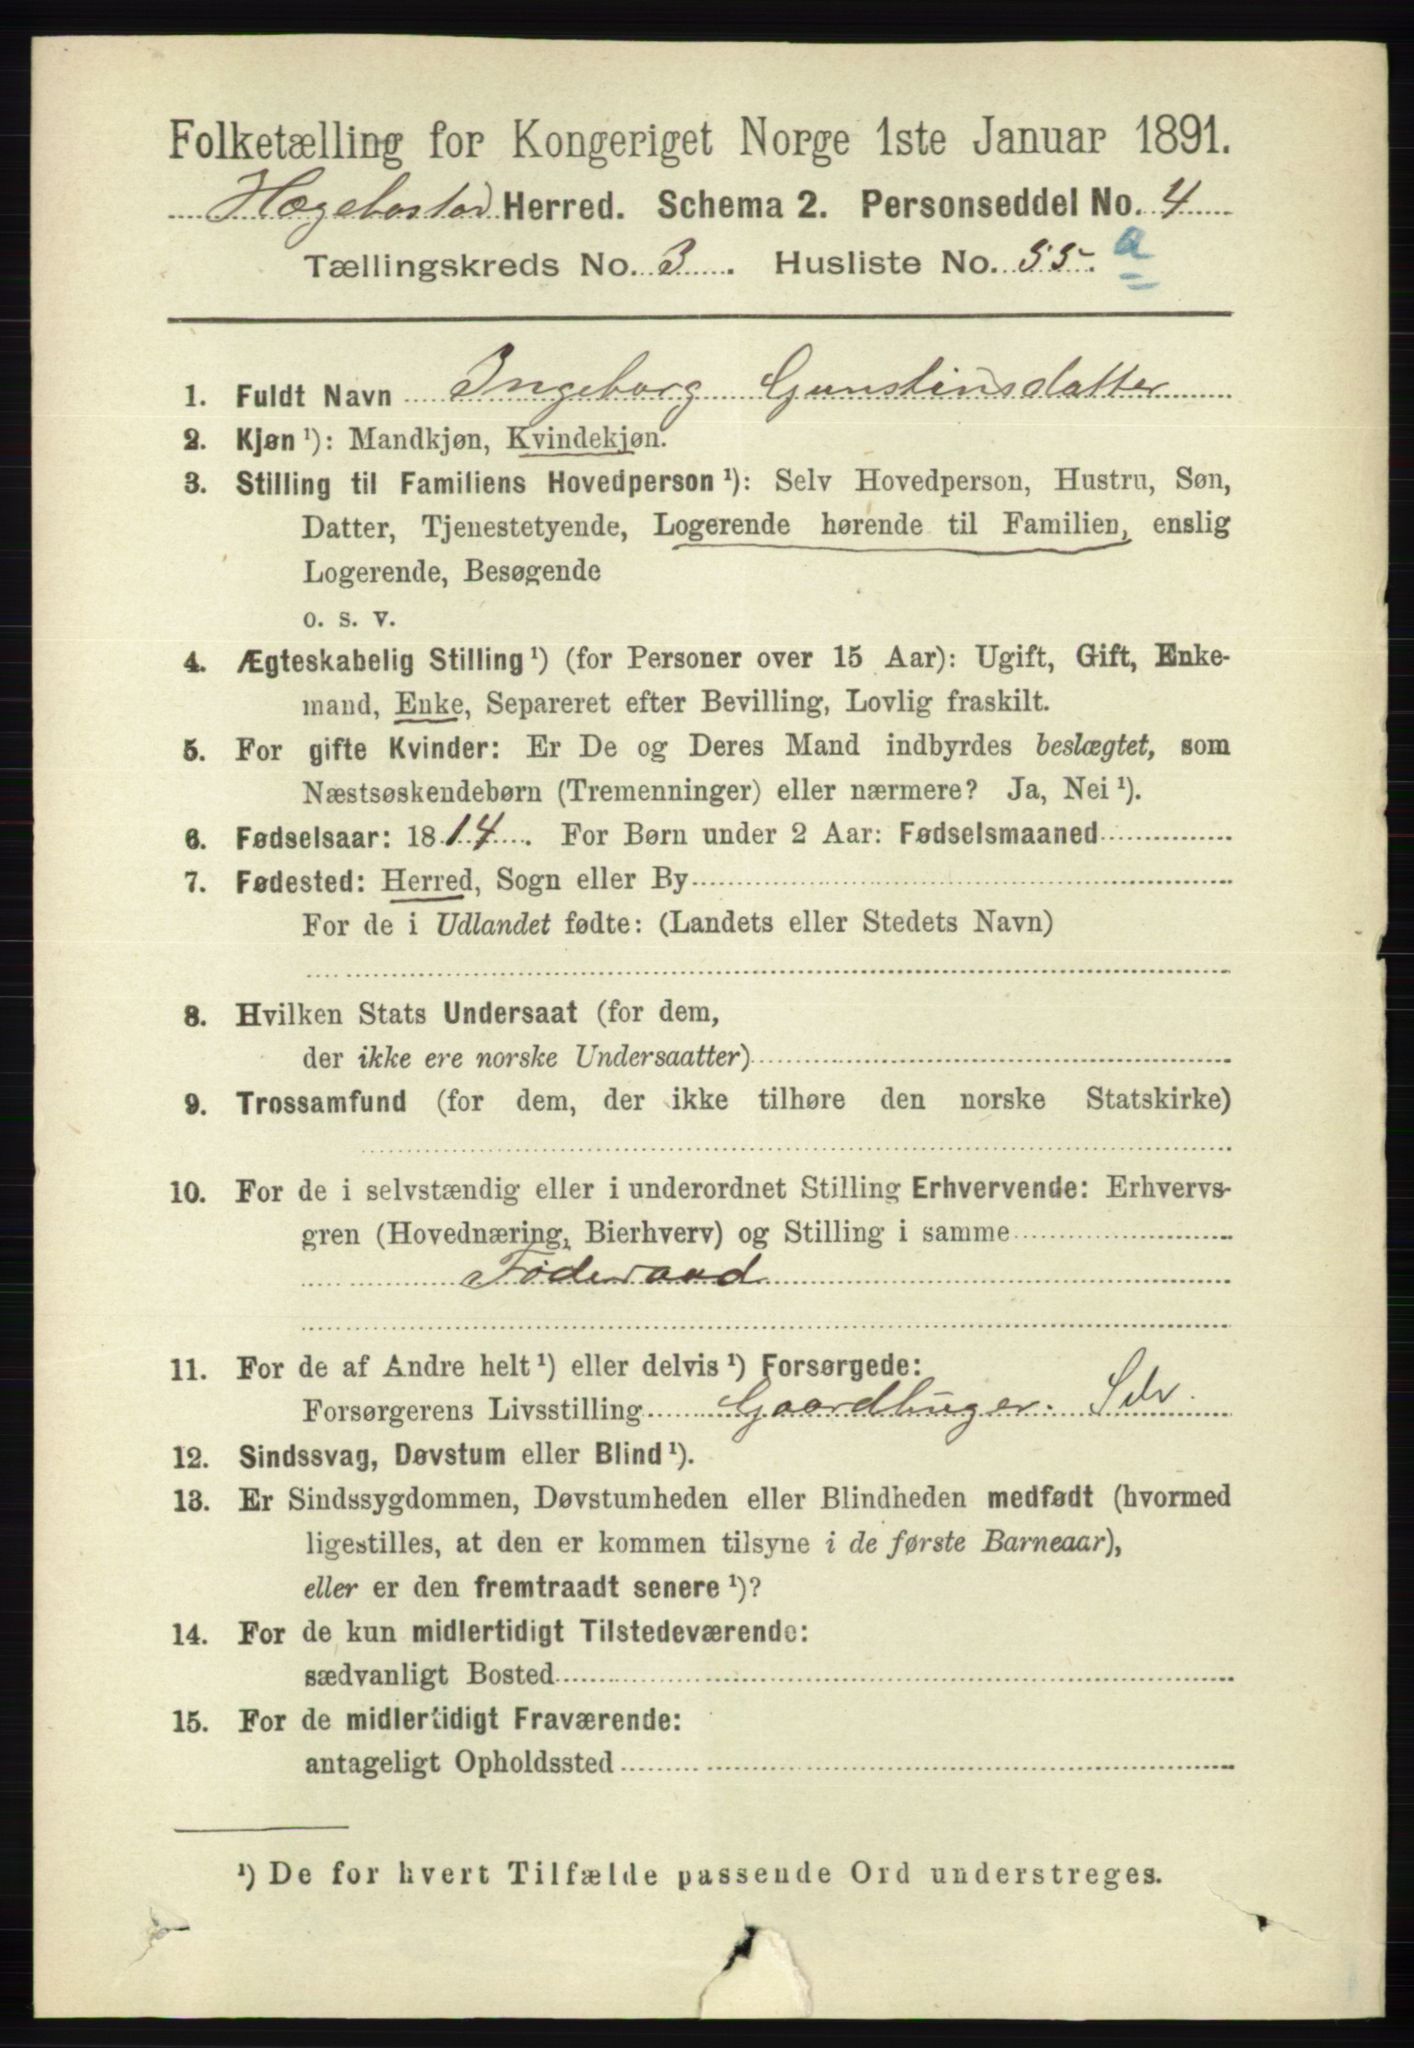 Folketælling for Kongeriget Norge 1ste Januar 1891.
Hægebostad Herred. Schema 2. Personseddel No. 4
Tællingskreds No. 3. Husliste No. 55. a
1. Fuldt Navn Ingeborg Gunstinsdatter
2. Kjøn ¹): Mandkjøn, Kvindekjøn.
3. Stilling til Familiens Hovedperson ¹): Selv Hovedperson, Hustru, Søn,
Datter, Tjenestetyende, Logerende hørende til Familien, enslig
Logerende, Besøgende
o. s. v.
4. Ægteskabelig Stilling ¹) (for Personer over 15 Aar): Ugift, Gift, Enke-
mand, Enke, Separeret efter Bevilling, Lovlig fraskilt.
5. For gifte Kvinder: Er De og Deres Mand indbyrdes beslægtet, som
Næstsøskendebørn (Tremenninger) eller nærmere? Ja, Nei ¹).
6. Fødselsaar: 1814. For Børn under 2 Aar: Fødselsmaaned
7. Fødested: Herred, Sogn eller By
For de i Udlandet fødte: (Landets eller Stedets Navn)
8. Hvilken Stats Undersaat (for dem,
der ikke ere norske Undersaatter)
9. Trossamfund (for dem, der ikke tilhøre den norske Statskirke)
10. For de i selvstændig eller i underordnet Stilling Erhvervende: Erhvervs-
gren (Hovednæring, Bierhverv) og Stilling i samme
Føderaad
11. For de af Andre helt ¹) eller delvis ¹) Forsørgede:
Forsørgerens Livsstilling Gaardbruger. Selv.
12. Sindssvag, Døvstum eller Blind ¹).
13. Er Sindssygdommen, Døvstumheden eller Blindheden medfødt (hvormed
ligestilles, at den er kommen tilsyne i de første Barneaar),
eller er den fremtraadt senere ¹)?
14. For de kun midlertidigt Tilstedeværende:
sædvanligt Bosted
15. For de midlertidigt Fraværende:
antageligt Opholdssted
¹) De for hvert Tilfælde passende Ord understreges.